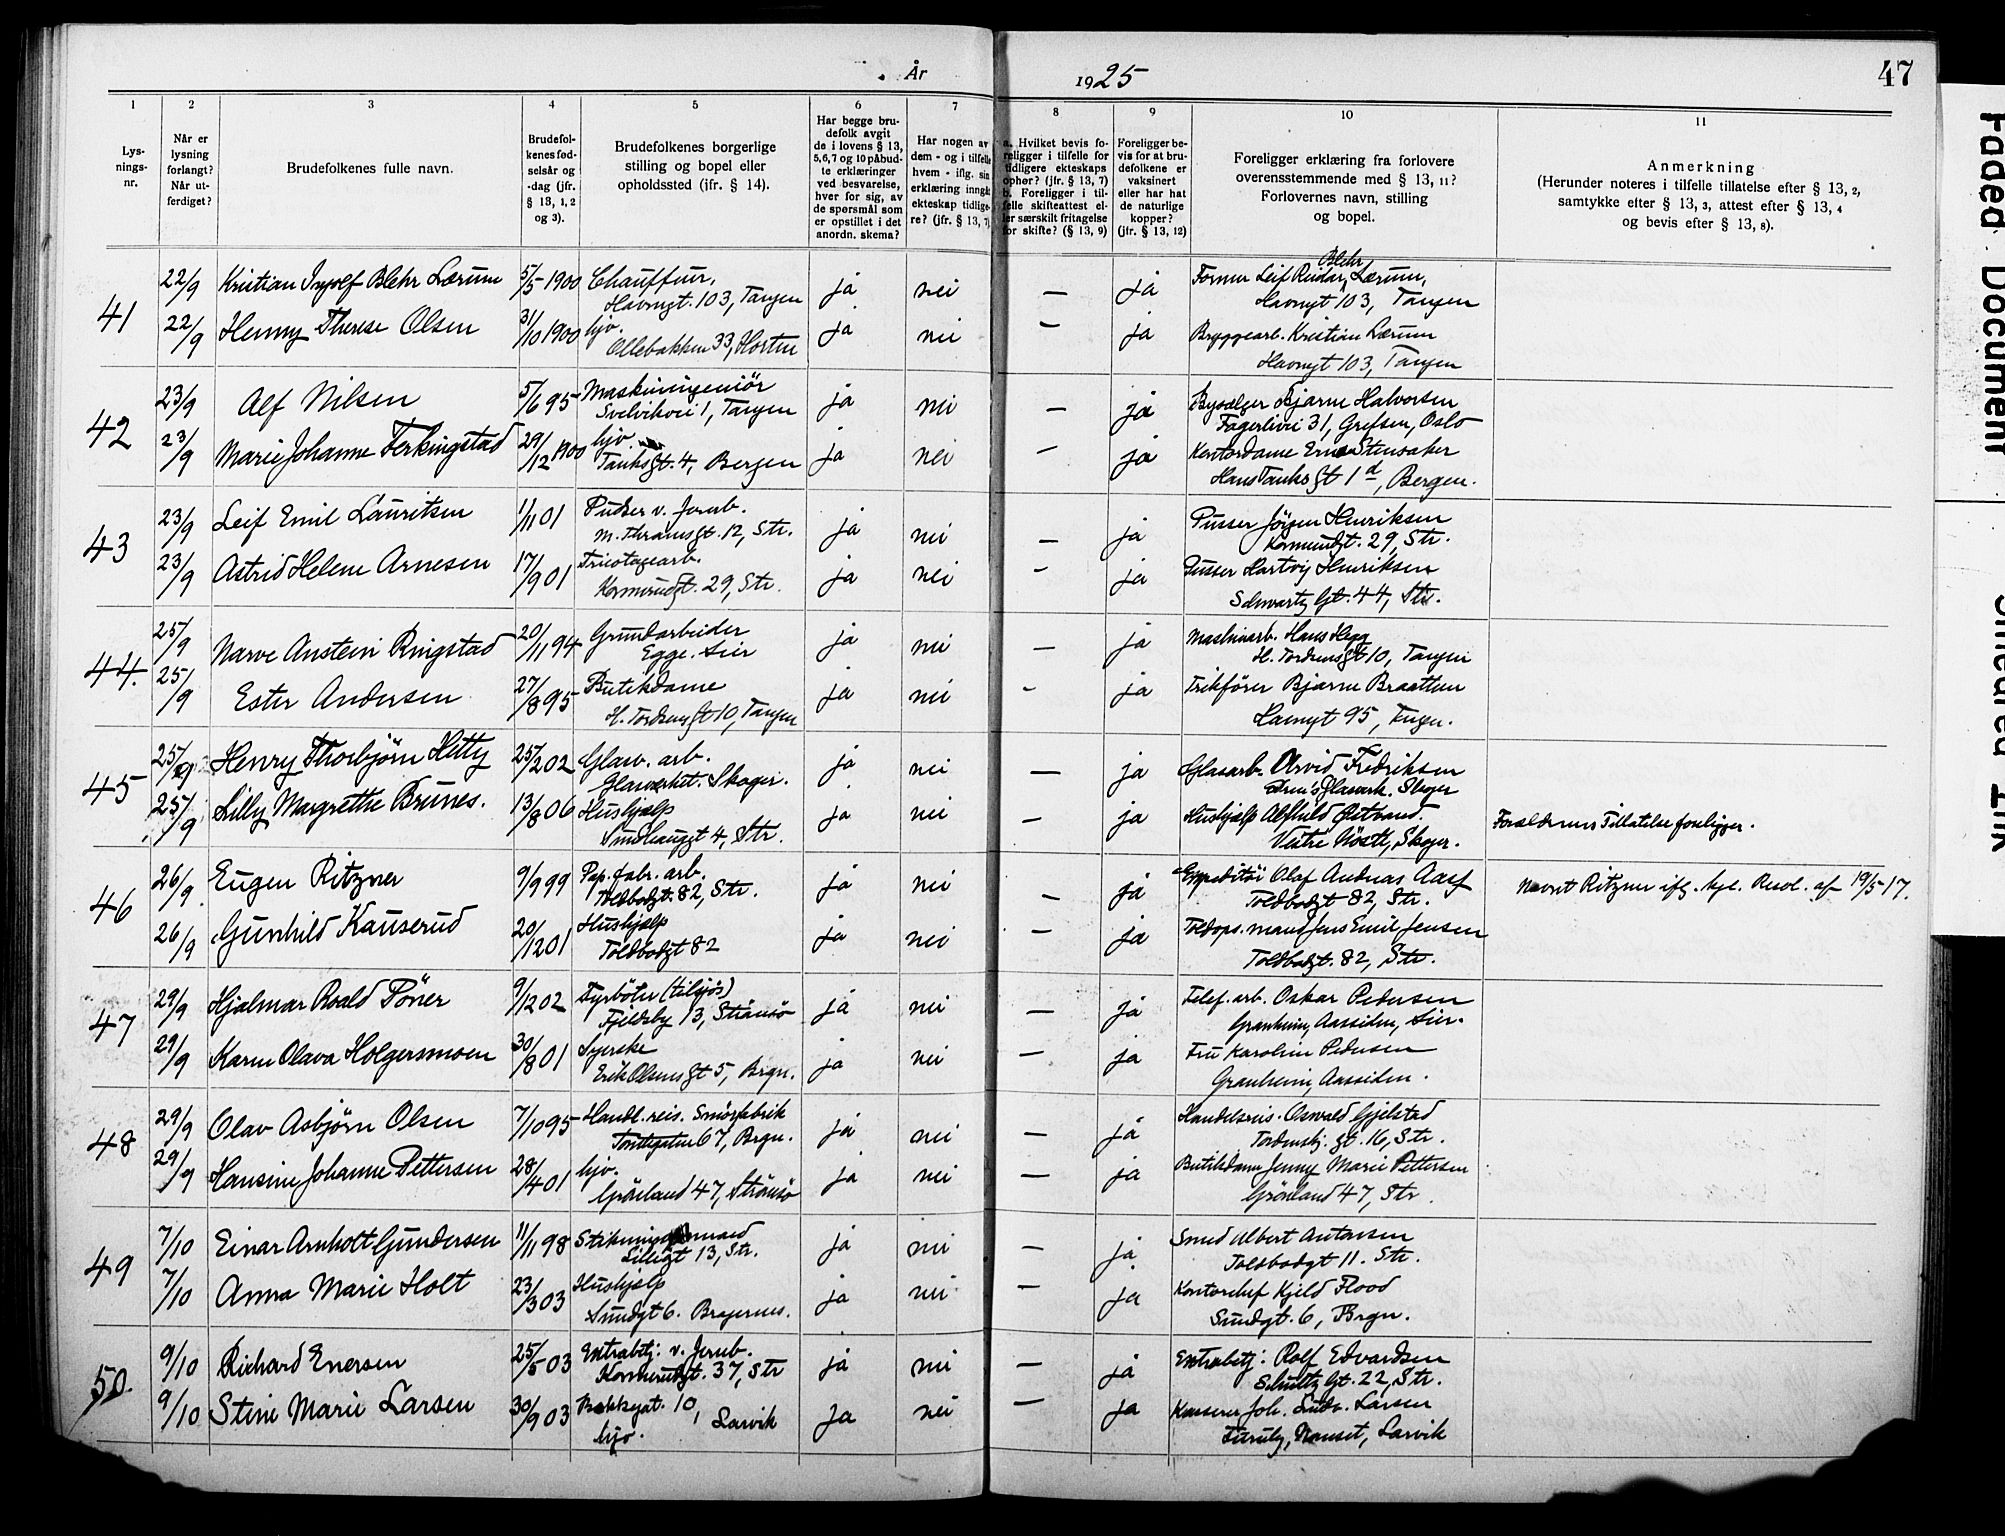 År 1925
47
1 2 3 4 5 6 7 8 9 10 11
Lysnings-nr.
Når er lysning forlangt? Når utferdiget?
Brudefolkenes fulle navn.
Brudefolkenes fødselsår og -dag (jfr. § 13, 1, 2 og 3).
Brudefolkenes borgerlige stilling og bopel eller opholdssted (jfr. § 14).
Har begge brudefolk avgit de i lovens § 13, 5, 6, 7 og 10 påbudte erklæringer ved besvarelse, hver for sig, av de spørsmål som er opstillet i det anordn. skema?
Har nogen av dem - og i tilfelle hvem - iflg. sin erklæring inngått ekteskap tidligere? (jfr. § 13, 7)
a. Hvilket bevis foreligger i tilfelle for tidligere ekteskaps ophør? (jfr. § 13, 7)
b. Foreligger i tilfelle skifteattest eller særskilt fritagelse for skifte? (§ 13, 9)
Foreligger bevis for at brudefolkene er vaksinert eller har hat de naturlige kopper? (jfr. § 13, 12)
Foreligger erklæring fra forlovere overensstemmende med § 13, 11? Forlovernes navn, stilling og bopel.
Anmerkning
(Herunder noteres i tilfelle tillatelse efter § 13, 2, samtykke efter § 13, 3, attest efter § 13, 4 og bevis efter § 13, 8).
41
22/9 Kristian Ingolf Blehr Lærum 5/5 1900 Chauffør, Havnegt. 103, Tangen ja nei — ja Former Leif Reidar Blehr Lærum, Havnegt 103, Tangen
22/9 Henny Therese Olsen 31/10 1900 hjv. Ollebakken 33, Horten ja nei — ja Bryggearb. Kristian Lærum Havnegt 103, Tangen
42
23/9 Alf Nilsen 5/6 95 Maskiningeniör Svelvikvei 1, Tangen ja nei — ja Bysælger Bjarne Halvorsen Fagerlivei 31, Grefsen, Oslo
23/9 Marie Johanne Ferkingstad 29/12 1900 hjv. Tanksgt. 4, Bergen ja nei — ja Kontordame Erna Stensaker Hans Tanksgt 1d, Bergen.
43
23/9 Leif Emil Lauritsen 1/11 01 Pudser v. Jernb. M. Thranesgt. 12, Str. ja nei — ja Pusser Jörgen Henriksen Konnerudgt. 29, Str.
23/9 Astrid Helene Arnesen 17/9 01 Tricotagearb. Konnerudgt. 29, Str. ja nei — ja Pusser Hartvig Henriksen Schwartz Gt. 44, Str.
44.
25/9 Narve Anstein Ringstad 20/11 94 Grundarbeider Egge. Lier ja nei — ja Maskinarb. Hans Hegg H. Tordensgt 10, Tangen
25/9 Ester Andersen 27/8 95 Butikdame H. Tordensgt 10, Tangen ja nei — ja Trikfører Bjarne Braathen Havnegt 95, Tangen.
45
25/9 Henry Thorbjørn Hetty 25/2 02 Glasv. arb. Glassverket. Skoger. ja nei — ja Glasarb. Arvid Fredriksen Drm's Glasverk. Skoger
25/9 Lilly Margrethe Brunes. 13/8 06 Hushjælp Sundhauggt 4, Str. ja nei — ja Hushjælp Alfhild Østrand. Skoger. Forældrenes Tillatelse foreligger.
46
26/9 Eugen Ritzner 9/9 99 Pap. fabr. arb. Toldbodgt. 82, Str. ja nei — ja Expeditör Olaf Andreas Aass Toldbodgt 82, Str. Navnet Ritzner ifg. kgl. Resol. af 19/5 17.
26/9 Gunhild Kauserud 20/12 01 Hushjælp Toldbodgt 82 ja nei — ja Toldops.mand Jens Emil Jensen Toldbodgt. 82, Str.
47
29/9 Hjalmar Roald Pöner 9/12 02 Fyrböter (tilsjös) Fjeldsby 13, Strömsö ja nei — ja Telef. arb. Oskar Pedersen Granheim, Aassiden, Lier.
29/9 Karen Olava Holgersmoen 30/8 01 Syerske Erik Olsens gt 5, Brgn. ja nei — ja Fru Karoline Pedersen Granheim, Aassiden.
48
29/9 Olav Asbjørn Olsen 7/10 95 Handl. reis. Smörfabrik Tomtegaten 67, Brgn. ja nei — ja Handelsreis. Oswald Gjelstad Tordenskj. gt. 16, Str.
29/9 Hansine Johanne Pettersen 28/4 01 hjv. Grönland 47, Strömsö ja nei — ja Butikdame Jenny Marie Pettersen Grönland 47, Str.
49
7/10 Einar Arnholt Gundersen 11/11 98 Lillegt 13, Str. ja nei — ja Smed Albert Antonsen Toldbodgt 11. Str.
7/10 Anna Marie Holt 23/3 03 Hushjælp Sundgt 6. Bragernes. ja nei — ja Kontorchef Kjeld Flood Sundgt. 6, Brgn.
50
9/10 Richard Enersen 25/5 03 Extrabetj. v. Jernb. Konnerudgt. 37, Str ja nei — ja Extrabetj. Rolf Edvardsen Schultz Gt. 22, Str.
9/10 Stine Marie Larsen 30/9 03 Bakkegt. 10, Larvik hjv. ja nei — ja Kasserer Joh. Ludv. Larsen Furuly, Nanset, Larvik
Faded Document
Smeared Ink